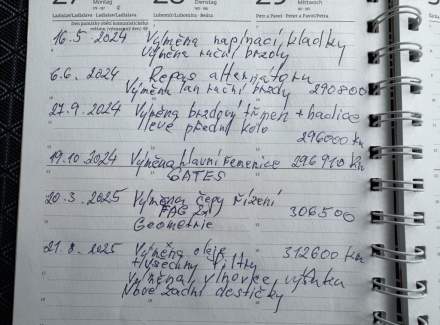 Montag
Dienstag
Mittwoch
Ladislav/Ladislava Ladislav/Ladislava
Lubomír/Lubomíra
Petr a Pavel Peter a Pavol/Petra
Den památky obětí komunistického
16.5 2024 Výměna napínací kladky
Výměna ruční brzdy
6.6. 2024 Repas alternátoru
Výměna lan ruční brzdy 290800
27.9.2024 Výměna brzdový třmen + hadice
levé přední kolo
296000 km
19.10 2024 Výměna hlavní řemenice 296910 km
GATES
20.3.2025 Výměna čepy řízení
FAG 2x 306500
Geometrie
21.8.2025 Výměna oleje 312600 km
+ Všechny filtry
Výměna vlnovce výfuku
Nové zadní destičky